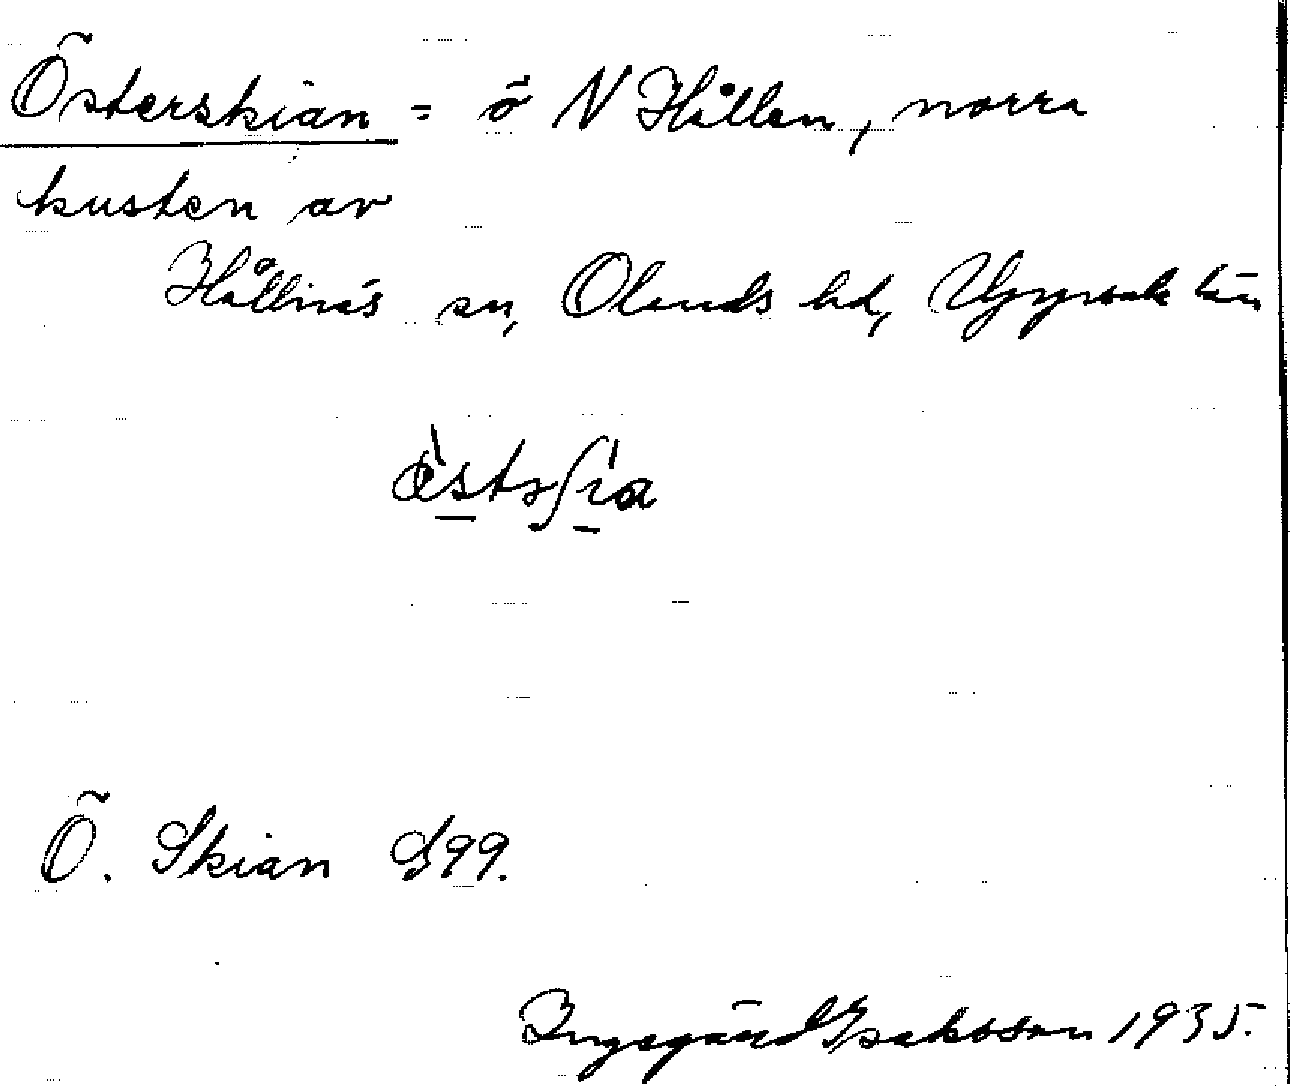 Österskian = ö N Hållen, norra
kusten av
Hållnäs sn, Olands hd, Uppsala län
Ö. Skian S99.
Ingegärd Isaksson 1935.